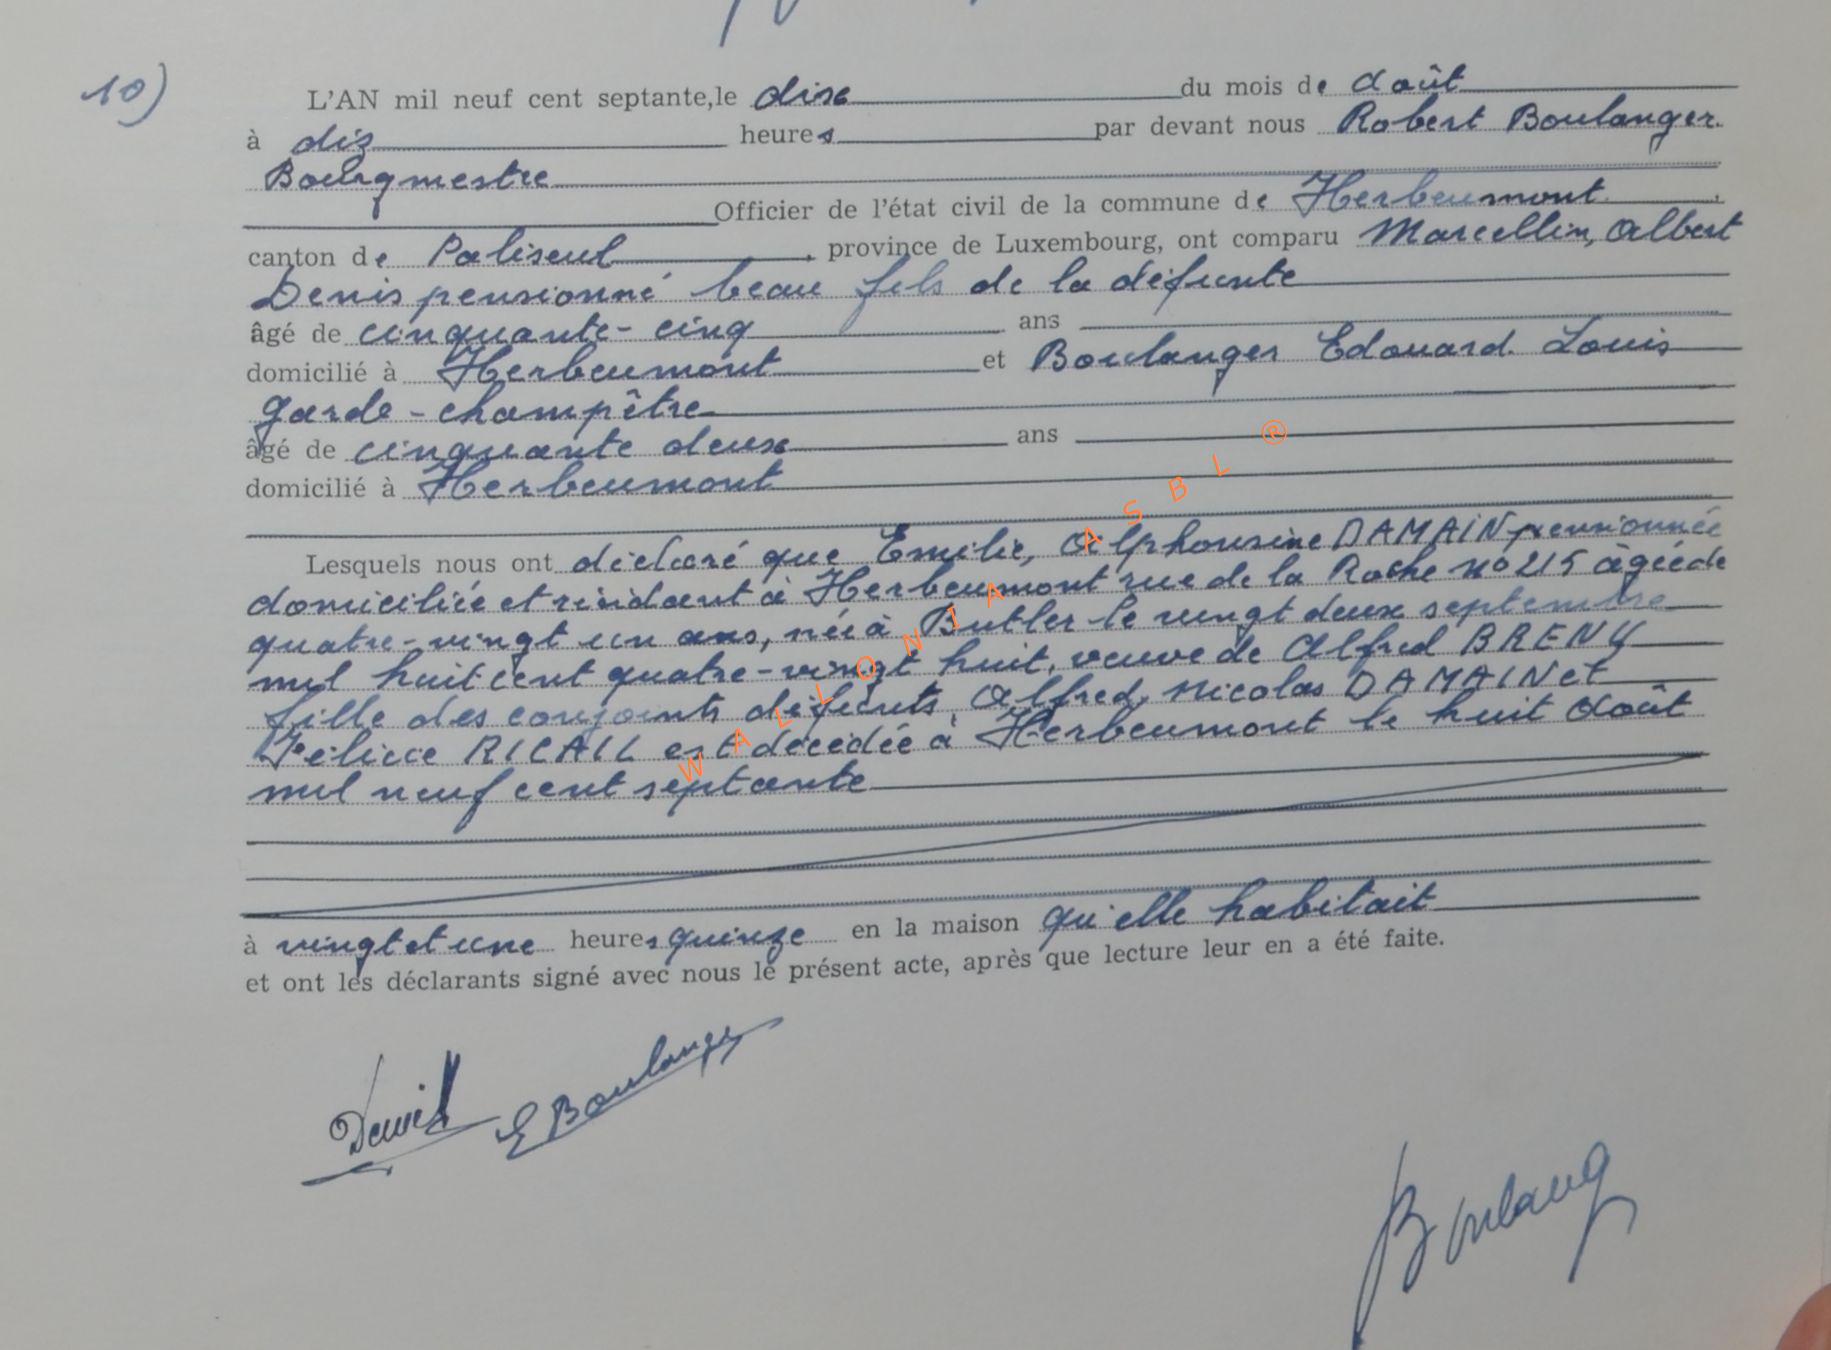 10)
L'AN mil neuf cent septante, le dix du mois de Août
à dix heures par devant nous Robert Boulanger.
Bourgmestre
Officier de l'état civil de la commune de Herbeumont
canton de Paliseul, province de Luxembourg, ont comparu Marcellin, Albert
Denis pensionné beau fils de la défunte
âgé de cinquante-cinq ans
domicilié à Herbeumont et Boulanger Edouard. Louis
garde-champêtre
âgé de cinquante deux ans
domicilié à Herbeumont
Lesquels nous ont déclaré que Emilie, Alphonsine DAMAIN pensionnée
domiciliée et résidant à Herbeumont rue de la Roche no 215 âgée de
quatre-vingt un ans, née à Butler le vingt deux septembre
mil huit cent quatre-vingt huit, veuve de Alfred BRENY
fille des conjoints défunts Alfred, Nicolas DAMAIN et
Félicie RICAIL est décédée à Herbeumont le huit Août
mil neuf cent septante
à vingt et une heures quinze en la maison qu'elle habitait
et ont les déclarants signé avec nous le présent acte, après que lecture leur en a été faite.
Denis E Boulanger
Boulang
WALLONIA ASBL ®